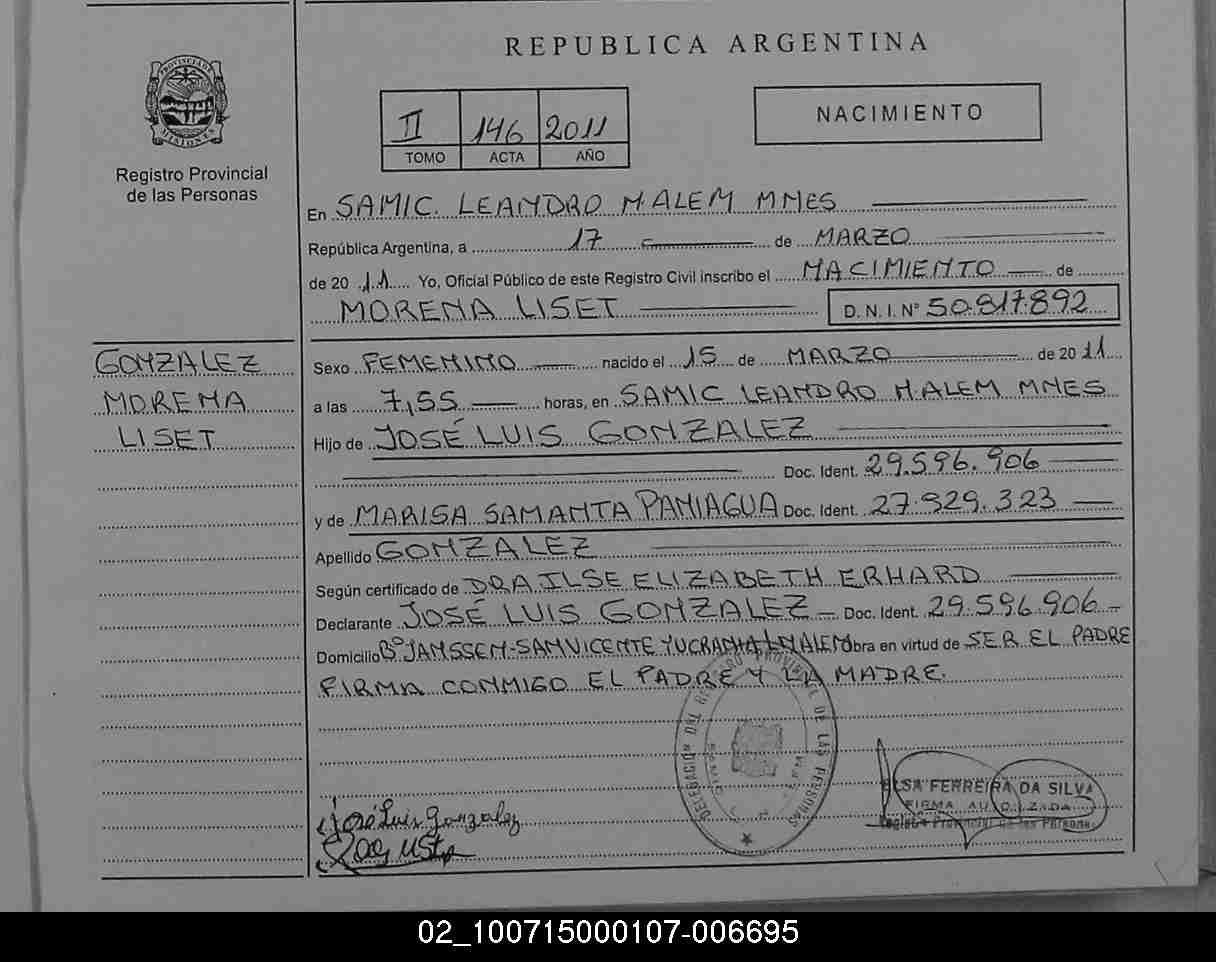 REPUBLICA ARGENTINA
PROVINCIA DE MISIONES
Registro Provincial
de las Personas
II 146 2011
TOMO ACTA AÑO
NACIMIENTO
En SAMIC. LEANDRO N. ALEM MNES
República Argentina, a 17 de MARZO
de 20 11 Yo, Oficial Público de este Registro Civil inscribo el NACIMIENTO de
MORENA LISET D. N. I. Nº 50.817.892
GONZALEZ
MORENA
LISET
Sexo FEMENINO nacido el 15 de MARZO de 20 11
a las 7,55 horas, en SAMIC LEANDRO N. ALEM MNES
Hijo de JOSÉ LUIS GONZALEZ
Doc. Ident. 29.596.906
y de MARISA SAMANTA PANIAGUA Doc. Ident. 27.929.323
Apellido GONZALEZ
Según certificado de DRA ILSE ELIZABETH ERHARD
Declarante JOSÉ LUIS GONZALEZ Doc. Ident. 29.596.906
Domicilio Bº JANSSEN-SAN VICENTE Y UCRANIA L N ALEM obra en virtud de SER EL PADRE
FIRMA CONMIGO EL PADRE Y LA MADRE.
DELEGACION DEL REGISTRO PROVINCIAL DE LAS PERSONAS
José Luis Gonzalez
ELSA FERREIRA DA SILVA
FIRMA AUTORIZADA
Registro Provincial de las Personas
02_100715000107-006695